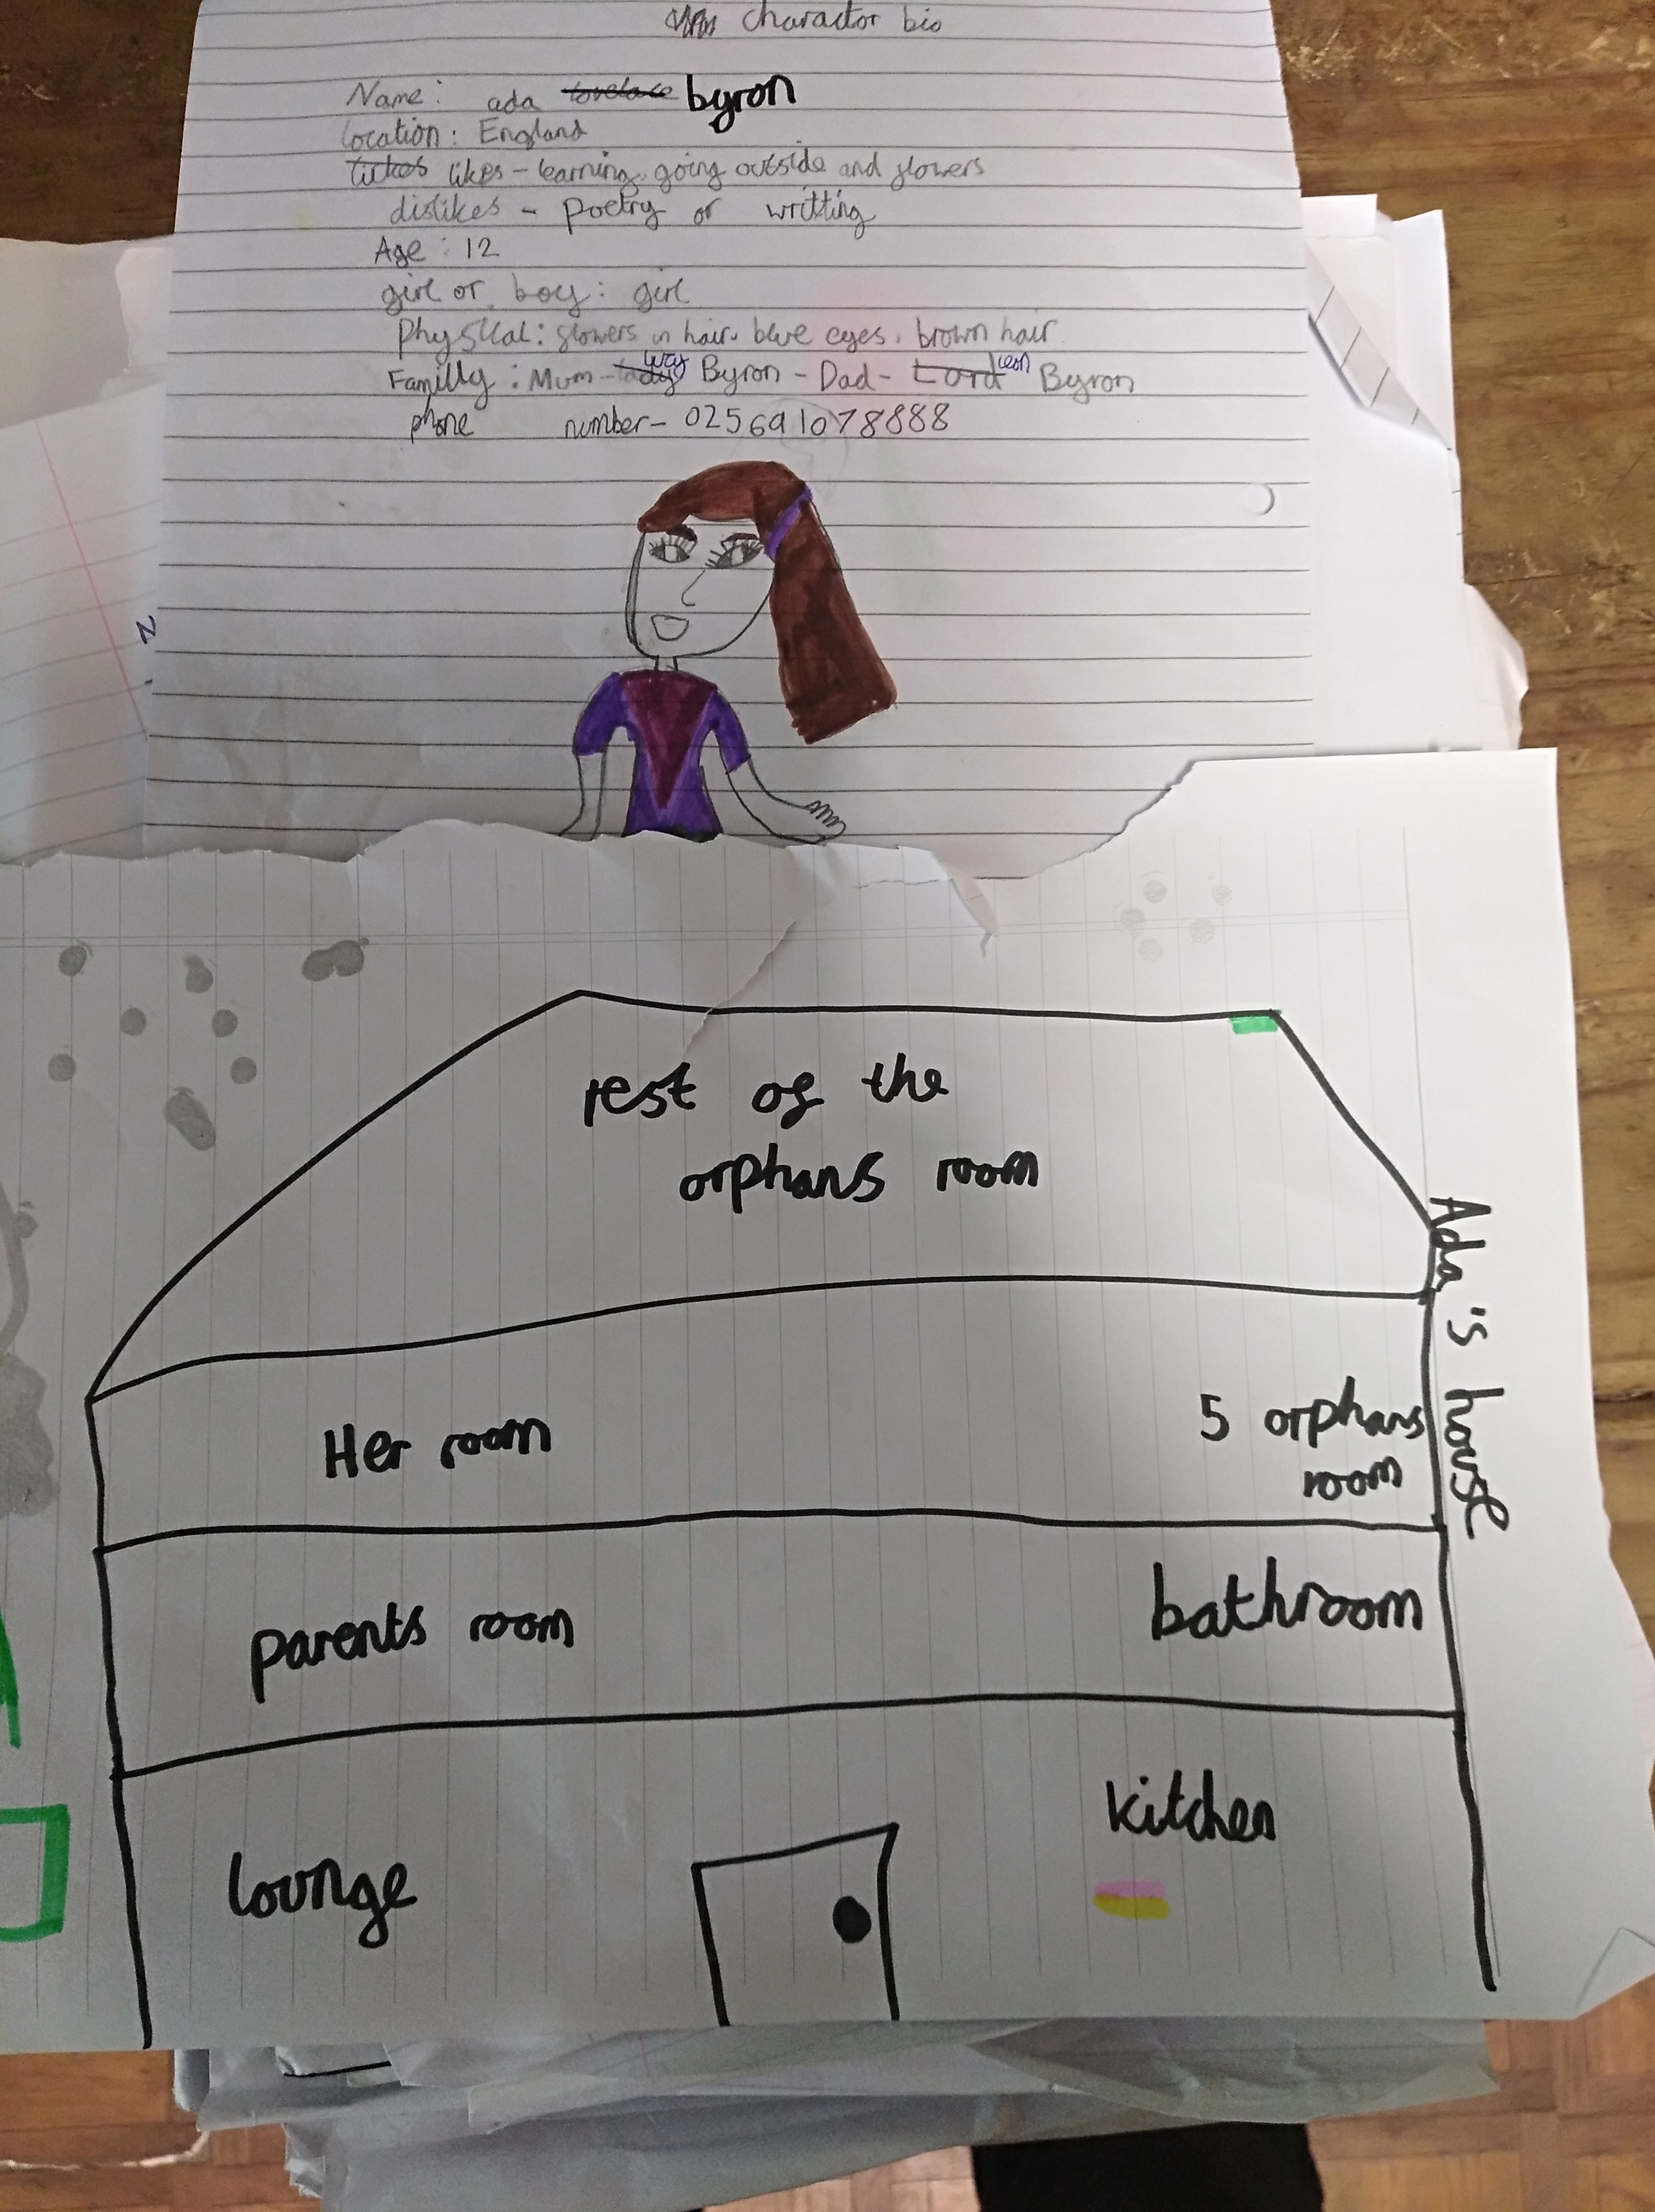 charactor bio
Name: ada lovelace byron
location: England
likes - learning, going outside and flowers
dislikes - poetry or writting
Age: 12
girl or boy: girl
Physical: flowers in hair. blue eyes. brown hair
Familly: Mum - lady lucy Byron - Dad - Lord leon Byron
phone number - 025691078888
N
rest of the
orphans room
Ada's house
Her room
5 orphans
room
parents room
bathroom
lounge
kitchen